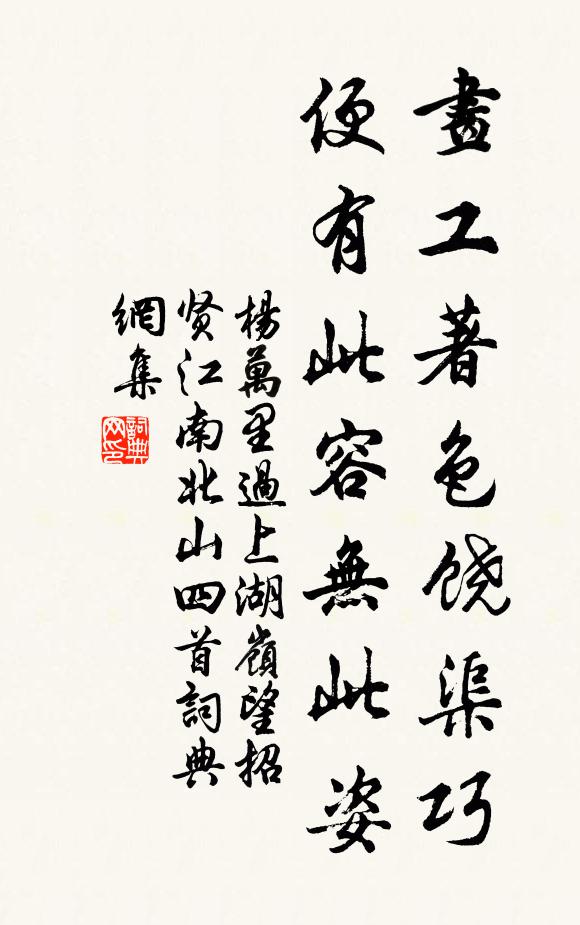 畫工著色饶渠巧
便有此容無此姿
楊萬里過上湖嶺望招
贤江南北山四首詞典
網集
詞典网印